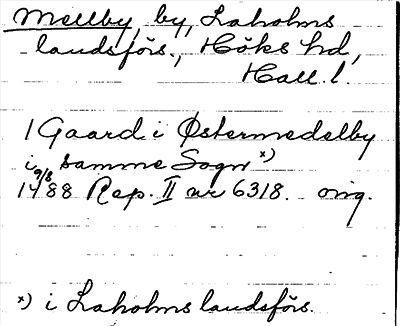 Mellby, by, Laholms
landsförs., Höks hd,
Hall. l.
1 Gaard i Østermedelby
i samme Sogn x)
9/8
1488 Rep. II nr 6318. orig.
x) i Laholms landsförs.